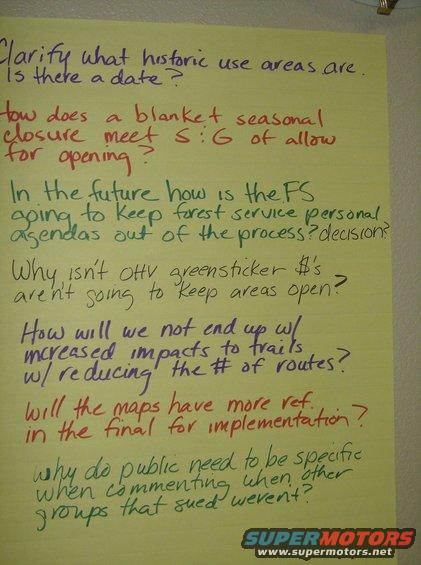 Clarify what historic use areas are.
Is there a date?
How does a blanket seasonal
closure meet S:G of allow
for opening?
In the future how is the FS
going to keep forest service personal
agendas out of the process? decision?
Why isn't OHV greensticker $'s
aren't going to keep areas open?
How will we not end up w/
increased impacts to trails
w/ reducing the # of routes?
Will the maps have more ref.
in the final for implementation?
why do public need to be specific
when commenting when other
groups that sued werent?
SUPERMOTORS
www.supermotors.net